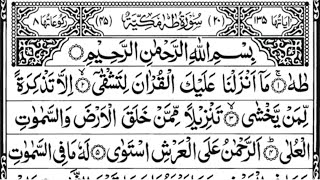 اٰيَاتُهَا ١٣٥ (٢٠) سُوْرَةُ طٰهٰ مَكِّيَّةٌ (٤٥) رُكُوْعَاتُهَا ٨
بِسْمِ اللّٰهِ الرَّحْمٰنِ الرَّحِيْمِ
طٰهٰ ١ مَآ اَنْزَلْنَا عَلَيْكَ الْقُرْاٰنَ لِتَشْقٰٓى ٢ اِلَّا تَذْكِرَةً
لِّمَنْ يَّخْشٰى ٣ تَنْزِيْلًا مِّمَّنْ خَلَقَ الْاَرْضَ وَالسَّمٰوٰتِ
الْعُلٰى ٤ اَلرَّحْمٰنُ عَلَى الْعَرْشِ اسْتَوٰى ٥ لَهٗ مَا فِى السَّمٰوٰتِ